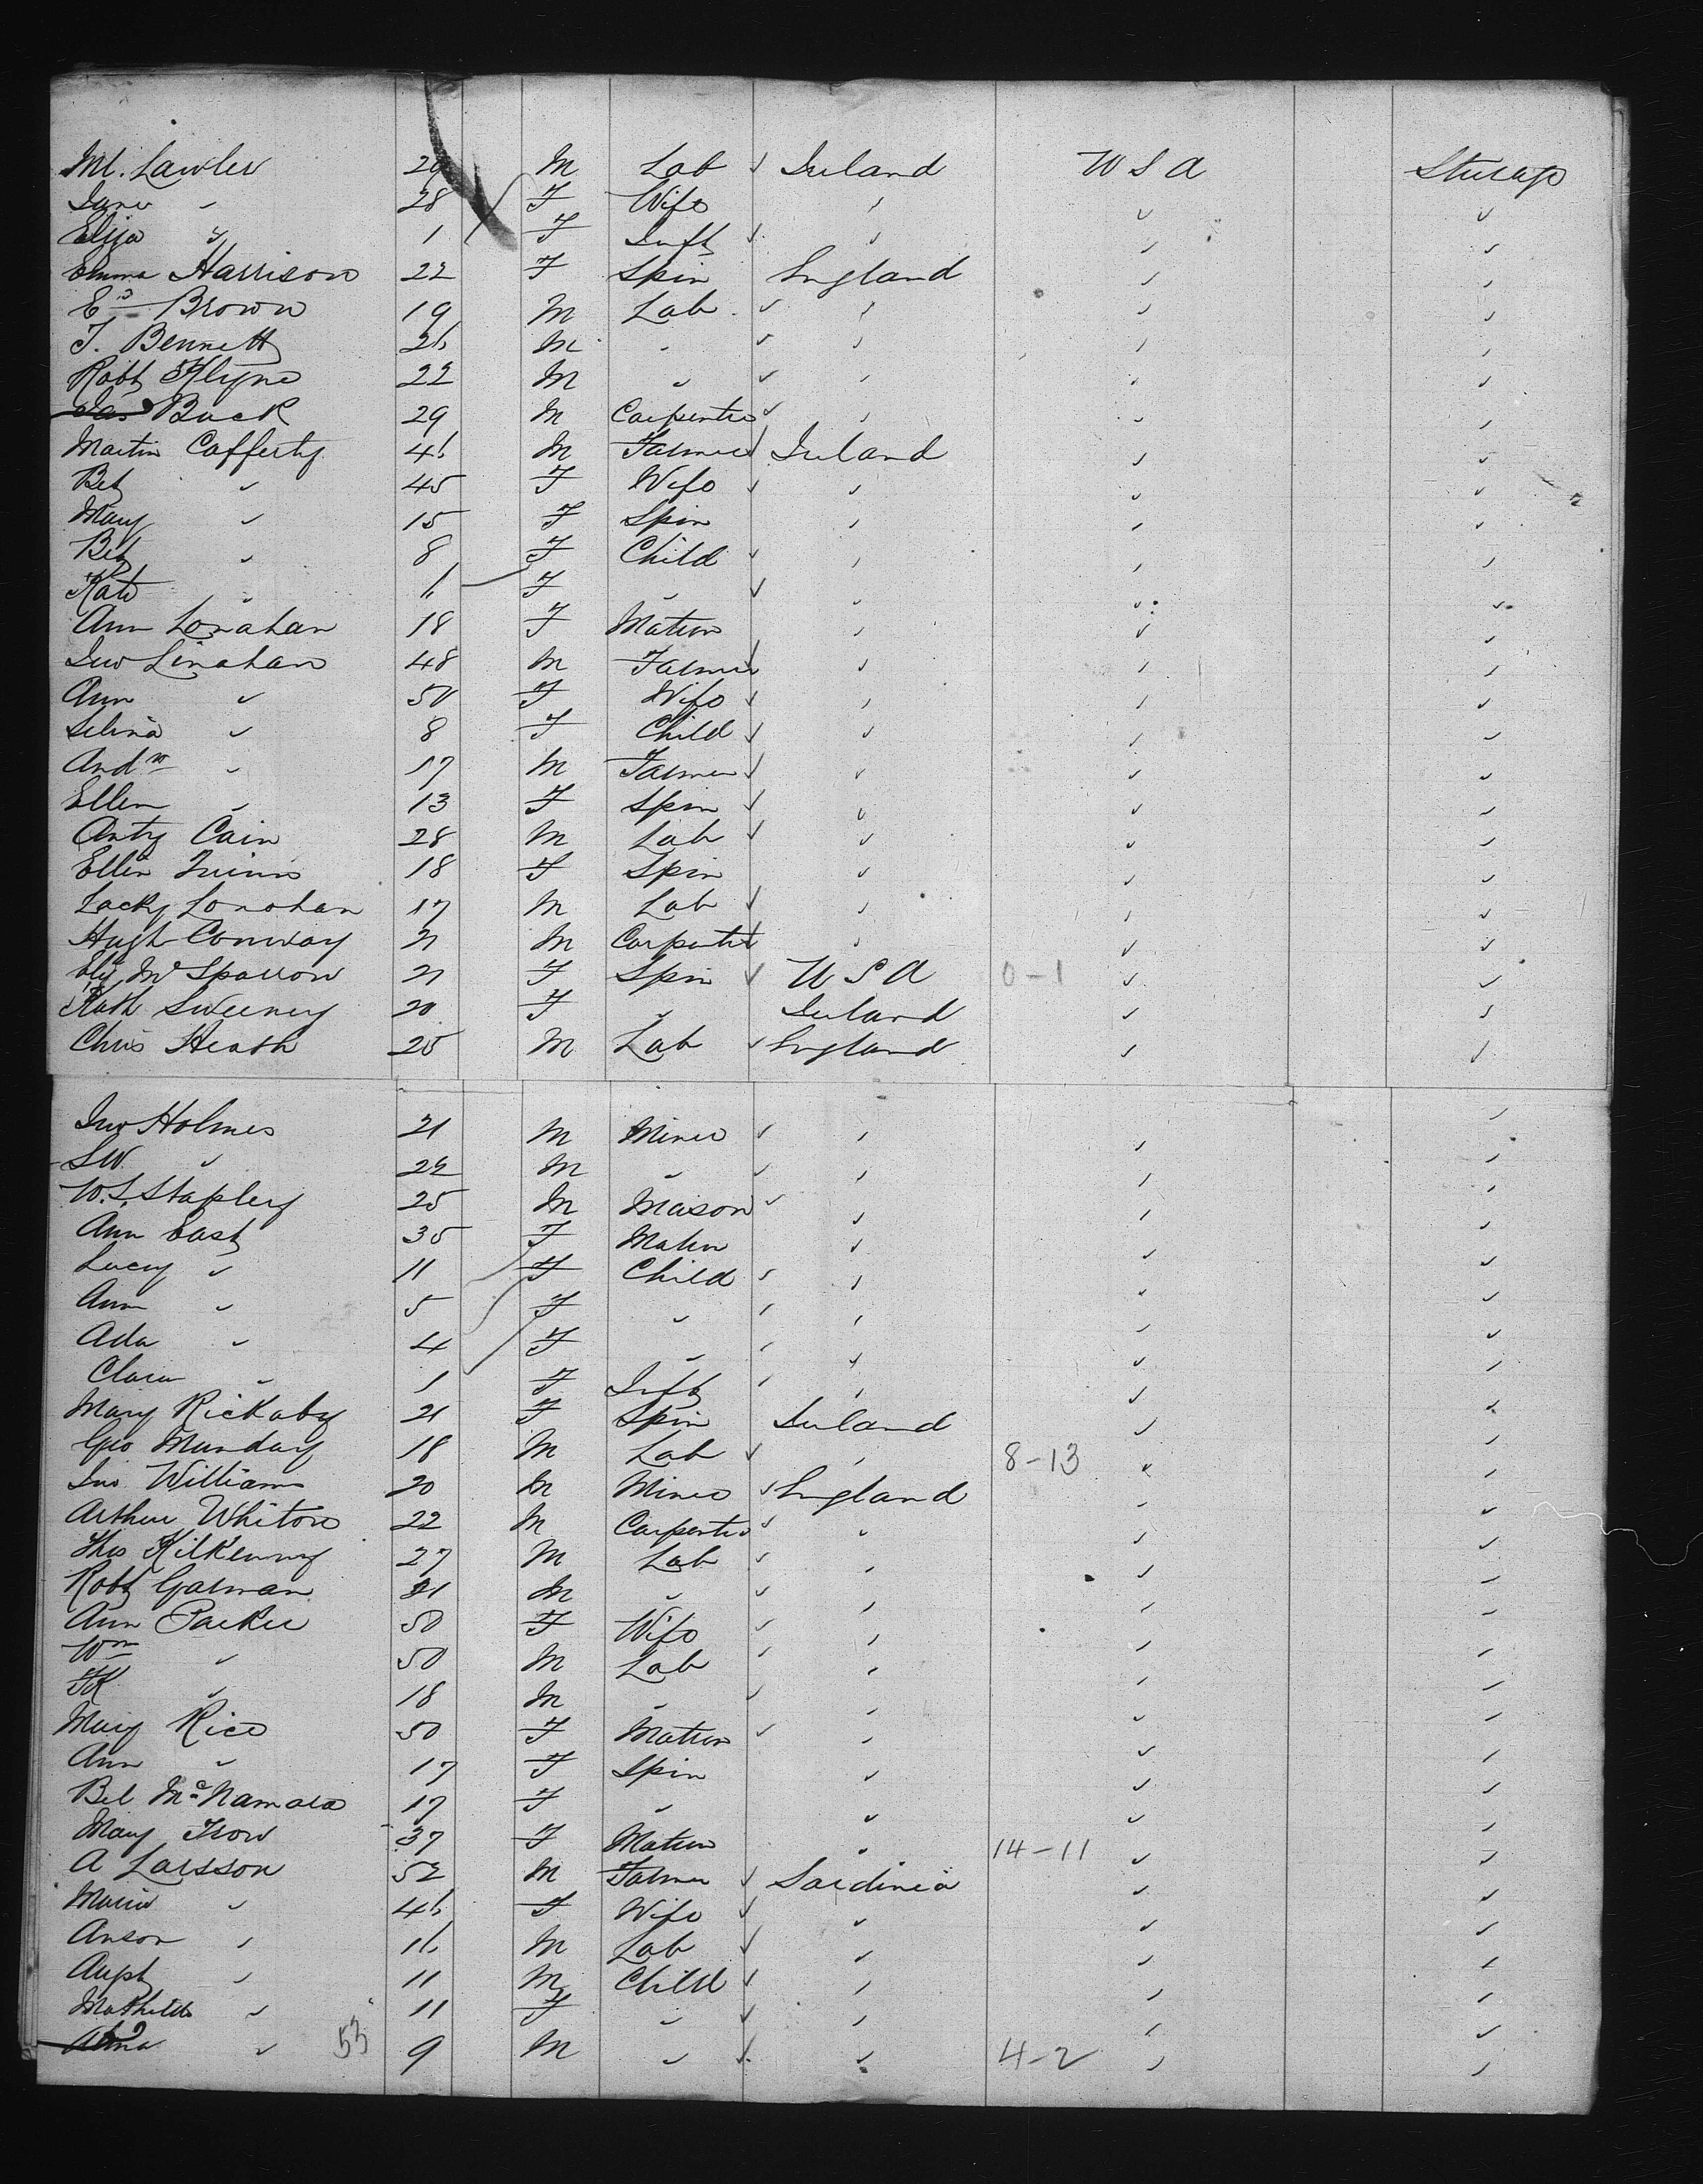 Ml. Lawler 29 M Lab ✓ Ireland U S A Steerage
Jane " 28 F Wife " " "
Eliza " 1 F Inft ✓ " " "
Emma Harrison 22 F Spin England " "
Ed Brown 19 M Lab ✓ " " "
T. Bennett 26 M " ✓ " " "
Robt Klyne 22 M " ✓ " " "
Jas Buck 29 M Carpenter ✓ " " "
Martin Cafferty 46 M Farmer ✓ Ireland " "
Bet " 45 F Wife ✓ " " "
Mary " 15 F Spin " " "
Bet " 8 F Child ✓ " " "
Kate " 6 F " ✓ " " "
Ann Lonahan 18 F Matron " " "
Jno Linahan 48 M Farmer ✓ " " "
Ann " 50 F Wife ✓ " " "
Selina " 8 F Child ✓ " " "
Andw " 17 M Farmer ✓ " " "
Ellen " 13 F Spin ✓ " " "
Anty Cain 28 M Lab ✓ " " "
Ellen 18 F Spin " " "
Lacky Lonohan 17 M Lab ✓ " " "
Hugh Conway 21 M Carpenter ✓ " " "
Eliz McSparrow 21 F Spin ✓ U S A 0-1 " "
Kath Sweeney 20 F " Ireland " "
Chris Heath 25 M Lab ✓ England " "
Jno Holmes 21 M Miner ✓ " " "
SW " 22 M " ✓ " " "
W. S. Stapley 25 M Mason ✓ " " "
Ann East 35 F Matrn " " "
Lucy " 11 F Child ✓ " " "
Ann " 5 F " ✓ " " "
Ada " 4 F " ✓ " " "
Clara " 1 F Inft ✓ " " "
Mary Rickaby 21 F Spin Ireland " "
Geo Munday 18 M Lab ✓ " 8-13 " "
Jno Williams 20 M Miner ✓ England " "
Arthur Whiton 22 M Carpenter ✓ " " "
Thos Kilkenny 27 M Lab ✓ " " "
Robt Garman 21 M " ✓ " " "
Ann Parker 50 F Wife ✓ " " "
Wm " 50 M Lab ✓ " " "
" 18 M " ✓ " " "
Mary Rice 50 F Matron ✓ " " "
Ann " 17 F Spin " " "
Bel McNamara 17 F " " " "
Mary Trow 37 F Matron " 14-11 " "
A Larsson 52 M Farmer ✓ Sardinia " "
Maria " 46 F Wife ✓ " " "
Anson " 16 M Lab ✓ " " "
Augst " 11 M Child ✓ " " "
Mathilda " 11 F " ✓ " " "
" 53 9 M " ✓ " 4-2 " "